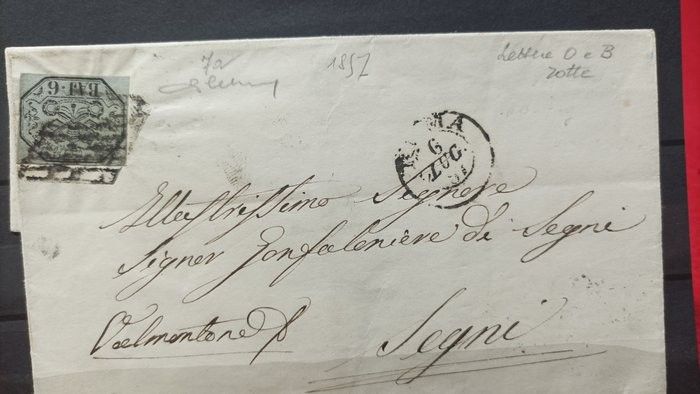 7a 1857 Lettere O e B
rotte
BAJ·6
ROMA
6
LUG.
Illustrissimo Signore
Signor Gonfaloniere di Segni
Valmontone p
Segni